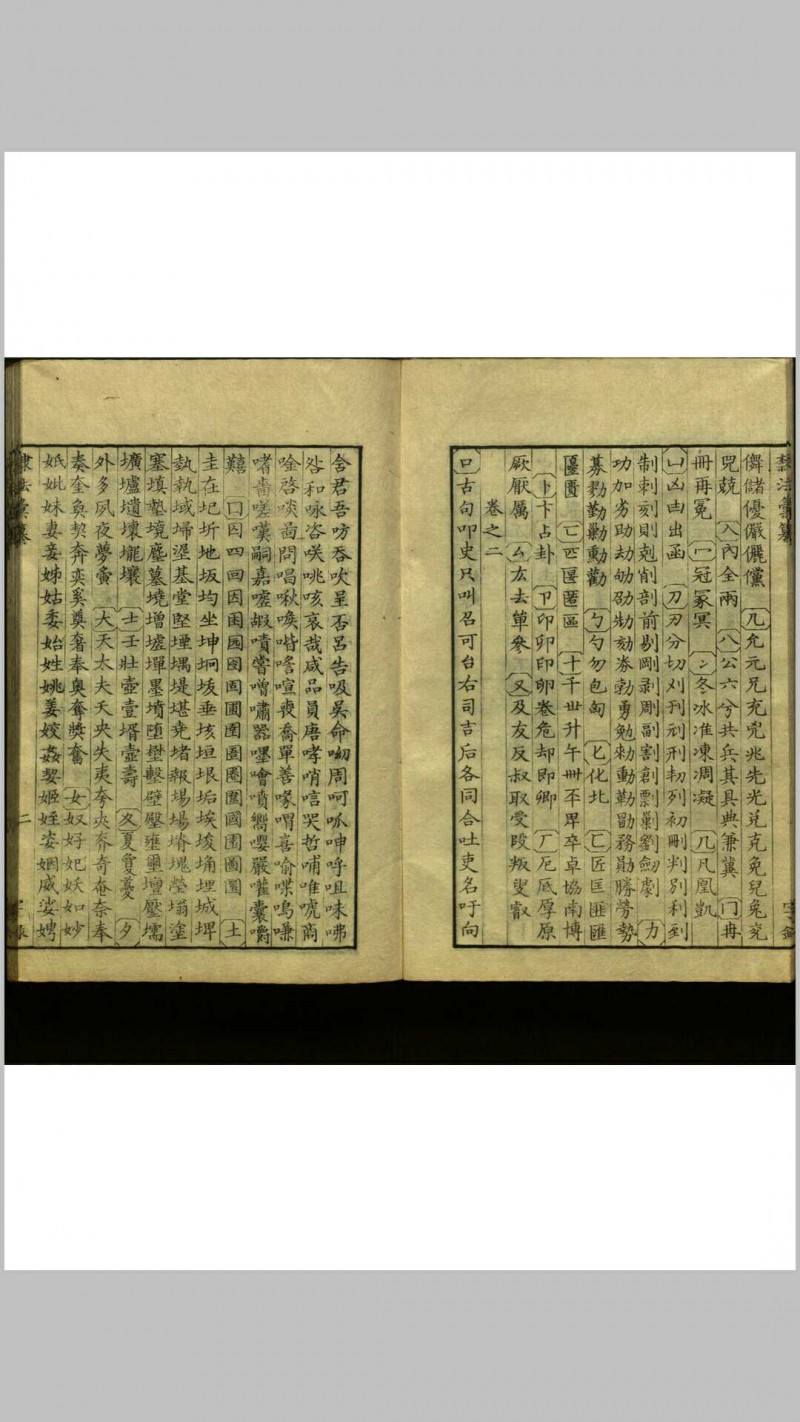 儛儲優儼儷儻儿允元兄充兇兆先光兌克免兒兔兗
兕兢入內全兩八公六兮共兵其具典兼冀冂冉
冊再冕冖冠冢冥冫冬冰准凍凋凝几凡凰凱
凵凶凷出函刀刃分切刈刊刓刑刱列初刪判別利到
制刺刻則剋削剖前剔剛剥剮副割創剽剿劉劍劇力
功加劣助劫劬劭劾券勃勇勉勑動勒勖務勛勝勞勢
募勦勤勳勸勹勺勿包匈匕化北匚匠匡匪匯
匱匵匸匹匽匿區十千卅升午卌丕卑卒卓協南博
卜卞占卦卩卬卯印卵卷危却即卿厂厄底厚原
厥厭厲厶厷去單參又及友反叔取受段叛叟叡
卷之二
口古句叩史只叫召可台右司吉后各同合吐吏名吁向
舍君吾吩吞吹呈否呂告吸吳命呦周呵呱呻呼咀味咈
咎和咏咨咲咷咳哀哉咸品員唐哮哨唁哭哲哺唯唬商
唫啓啖啚問唱啾喚喈喑喧喪喬單善喙喟喜喻喋嗚嗛
嗜嗇嗟嘆嗣嘉噓嘏嘖嘗噌嘯器嘿噲噴嚮嚶嚴嚾囊嚼
囏囗囚四回因困固囹圃圉圍圈圜國圖團圓土
圭在圮圻地坂均坐坤坰垓垂垓垣垠垢埃埈埇埋城埤
埶執域埽堊基堂堅堙堣堤堪堯堵報場塲塉塊塋塌塗
塞填塾境塵墓墝增墟墠墨墳墮壄墼壁壓壅璽壇壓壖
壙壚壝壞壠壤士壬壯壺壹壻壼壽夊夏夐夔夕
外多夙夜夢夤大天太夫夭央失夷夸夾奔奇奄奈奉
奏奎奐契奕奚奠奢奉奥奪獎奮女奴好妃妖如妙
妣妹妻妾姊姑委始姓姚姜姣姦娶姬姪姿姻威娑娉